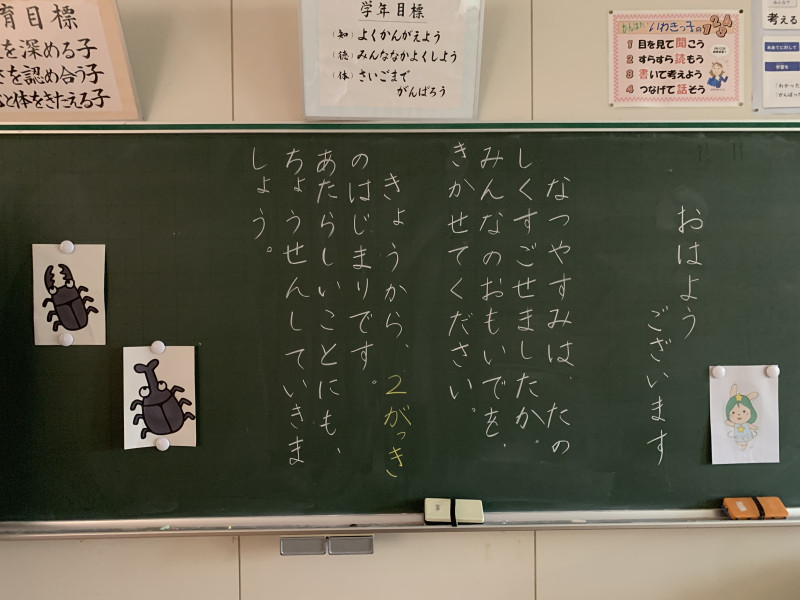 育目標
を深める子
さを認め合う子
心と体をきたえる子
学年目標
(知) よくかんがえよう
(徳) みんななかよくしよう
(体) さいごまで
がんばろう
いわきっ子の1234
1 目を見て聞こう
2 すらすら読もう
3 書いて考えよう
4 つなげて話そう
考える
おはよう
ございます
なつやすみは、たの
しくすごせましたか。
みんなのおもいでを、
きかせてください。
きょうから、2がっき
のはじまりです。
あたらしいことにも、
ちょうせんしていきま
しょう。